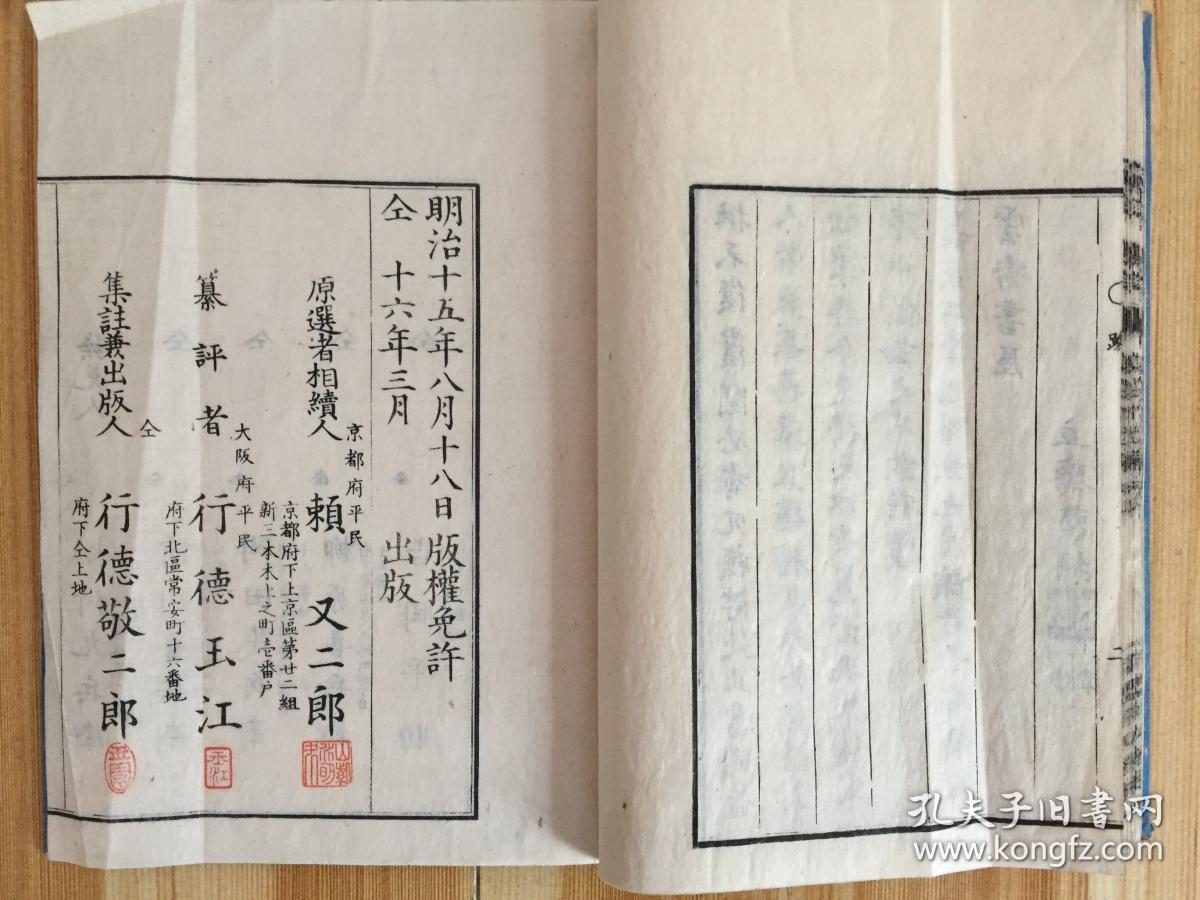 明治十五年八月十八日版權免許
仝 十六年三月 出版
京都府平民
原選者相續人 賴又二郎
京都府下上京區第廿二組
新三本木上之町壱番戸
大阪府平民
纂評者 行德玉江
府下北區常安町十六番地
仝
集註兼出版人 行德敬二郎
府下仝上地
跋
二
孔夫子旧书网
www.kongfz.com